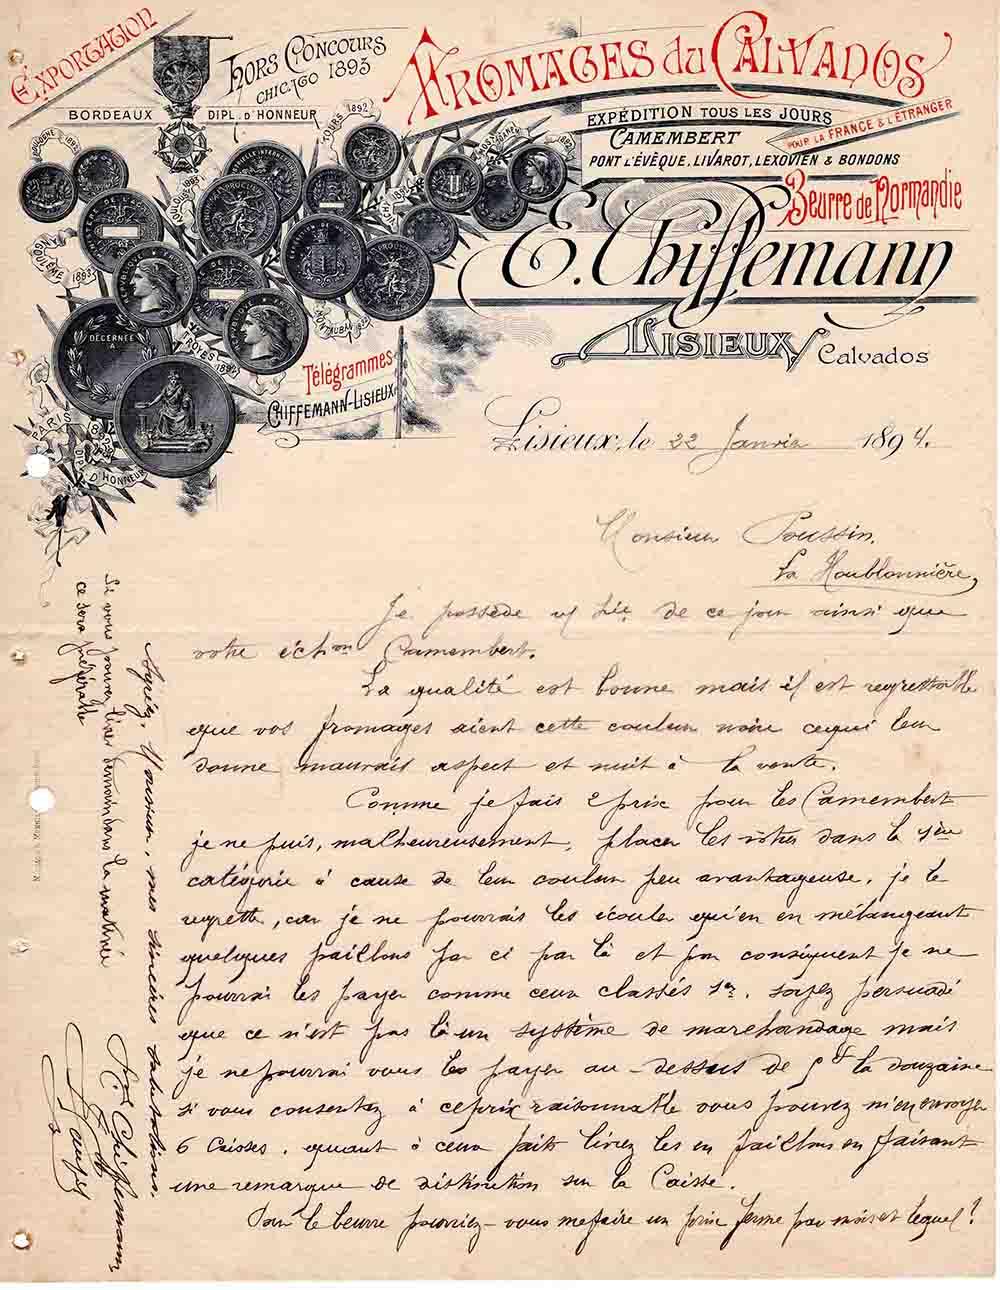 EXPORTATION
HORS CONCOURS
CHICAGO 1893
BORDEAUX DIPL. D'HONNEUR
FROMAGES DU CALVADOS
EXPÉDITION TOUS LES JOURS
POUR LA FRANCE & L'ÉTRANGER
CAMEMBERT
PONT L'ÉVÊQUE, LIVAROT, LEXOVIEN & BONDONS
Beurre de Normandie
E. Chiffemann
LISIEUX Calvados
TOURS 1892
TOULOUSE
ANGOULÊME 1893
MONTAUBAN
TROYES
DÉCERNÉE
A
PARIS
DIP. D'HONNEUR
Télégrammes
CHIFFEMANN-LISIEUX
Lisieux, le 22 Janvier 1894.
Monsieur Poussin,
La Houblonnière,
Je possède v/ de ce jour ainsi que
votre échon Camembert.
La qualité est bonne mais il est regrettable
que vos fromages aient cette couleur noire ce qui leur
donne mauvais aspect et nuit à la vente.
Comme je fais 2 prix pour les Camembert
je ne puis, malheureusement, placer les vôtres dans la 1ère
catégorie à cause de leur couleur peu avantageuse, je le
regrette, car je ne pourrais les écouler qu'en en mélangeant
quelques paillons par ci par là et par conséquent je ne
pourrai les payer comme ceux classés 1er. soyez persuadé
que ce n'est pas là un système de marchandage mais
je ne pourrai vous les payer au-dessus de la douzaine
si vous consentez à ce prix raisonnable vous pouvez m'en envoyer
6 Caisses, quant à ceux faits livrez les en paillons en faisant
une remarque de distinction sur la Caisse.
Pour le beurre pourriez-vous me faire un prix ferme par mois et lequel?
Agréez, Monsieur, mes sincères salutations.
Pron E. Chiffemann
Si vous pouvez livrer demain dans la matinée
ce sera préférable